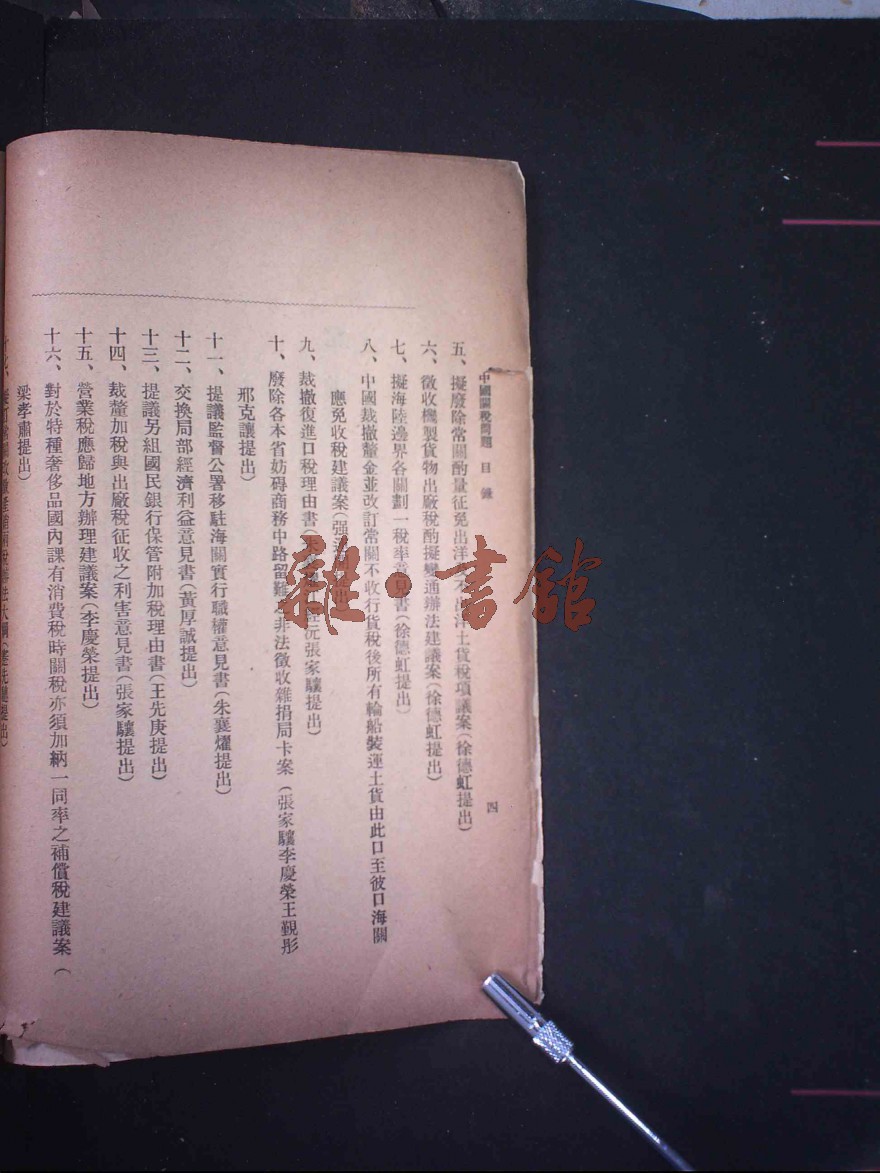 中國關稅問題 目錄
四
五、擬廢除常關酌量征免出洋土貨稅項議案(徐德虹提出)
六、徵收機製貨物出廠稅酌擬變通辦法建議案(徐德虹提出)
七、擬海陸邊界各關劃一稅率意見書(徐德虹提出)
八、中國裁撤釐金並改訂常關不收行貨稅後所有輪船裝運土貨由此口至彼口海關
應免收稅建議案(强
九、裁撤復進口稅理由書(沅張家驤提出)
十、廢除各本省妨碍商務中路留難非法徵收雜捐局卡案(張家驤李慶榮王覲彤
邢克讓提出)
十一、提議監督公署移駐海關實行職權意見書(朱襄燿提出)
十二、交換局部經濟利益意見書(黃厚誠提出)
十三、提議另組國民銀行保管附加稅理由書(王先庚提出)
十四、裁釐加稅與出廠稅征收之利害意見書(張家驤提出)
十五、營業稅應歸地方辦理建議案(李慶榮提出)
十六、對於特種奢侈品國內課有消費稅時關稅亦須加納一同率之補償稅建議案(
梁孝肅提出)
雜·書館